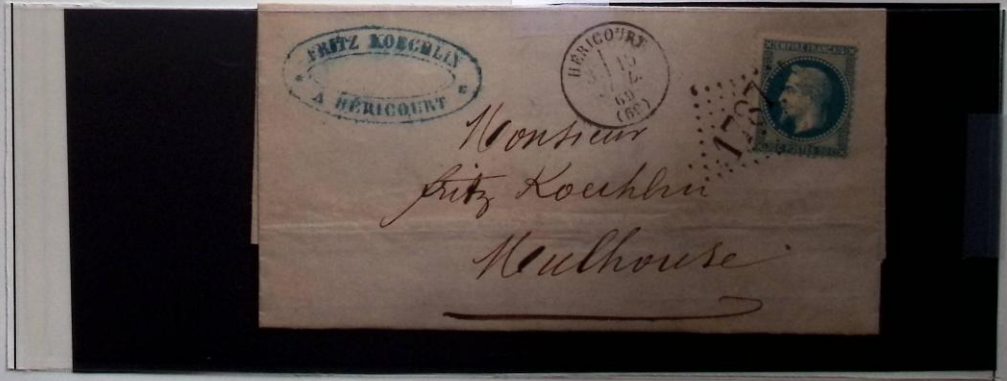 FRITZ KOECHLIN
A HÉRICOURT
HÉRICOURT
69
(66)
EMPIRE FRANÇAIS
Monsieur
fritz Koechlin
Mulhouse